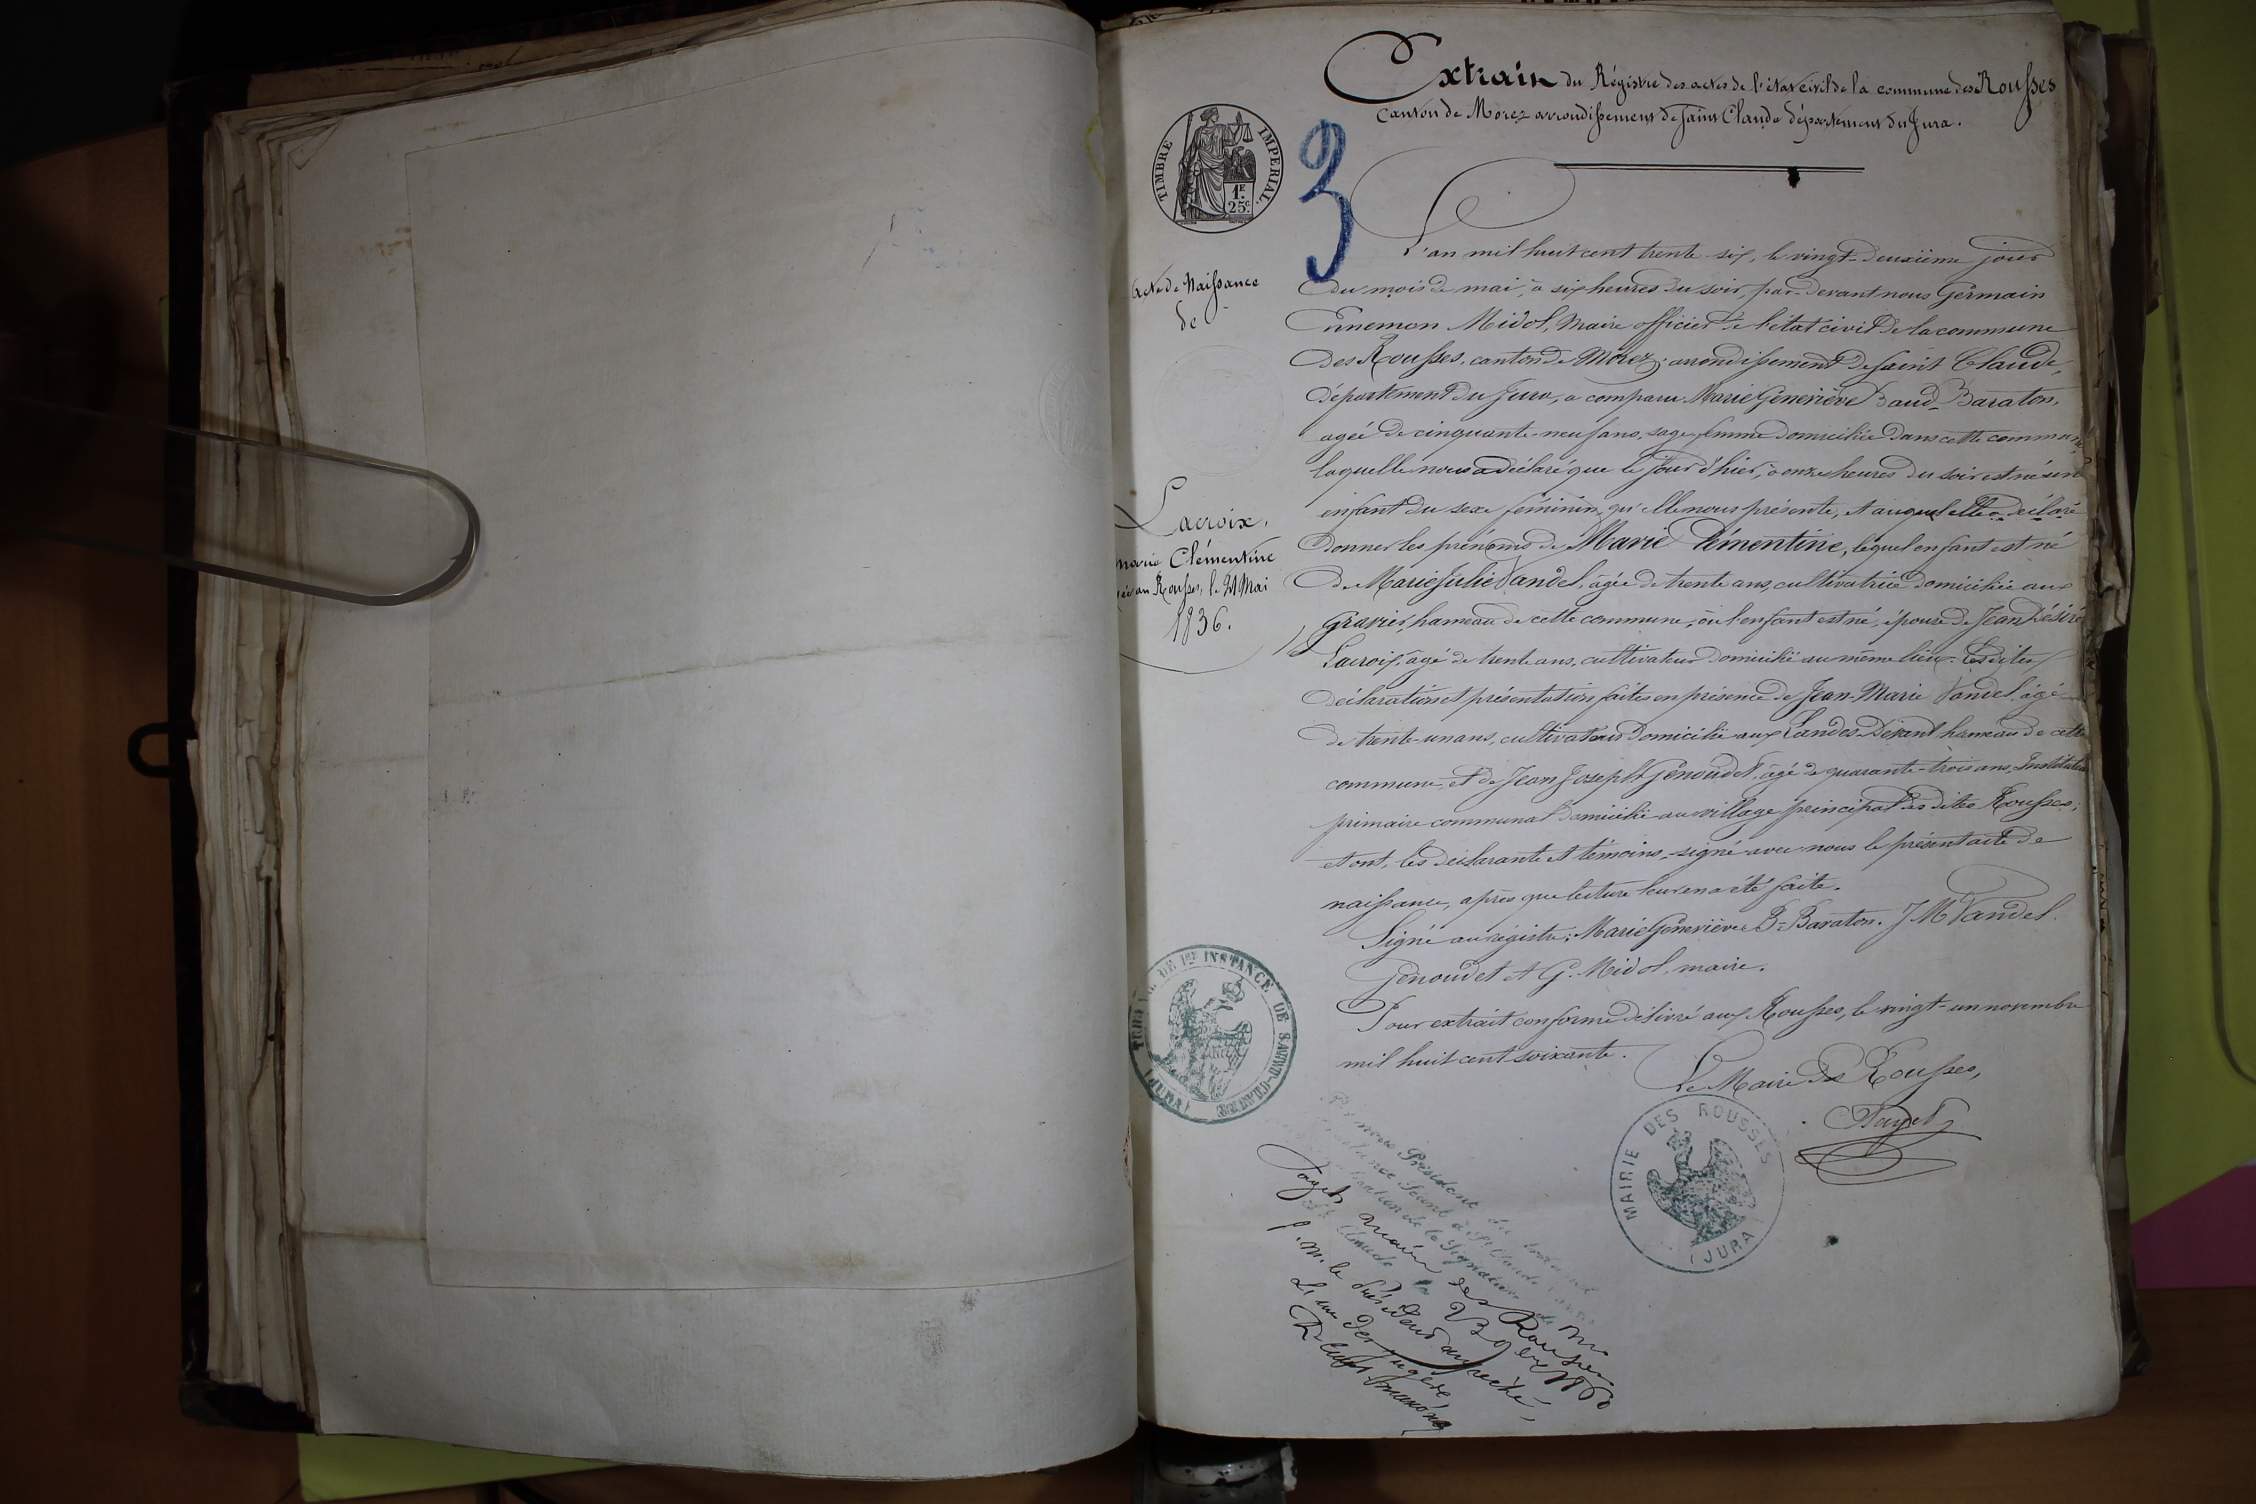 Extrait du Régistre des actes de l'état civil de la commune des Rousses
canton de Morez arrondissement de Saint Claude département du Jura.
TIMBRE IMPERIAL.
1F.
25c.
3
Acte de Naissance
de
Lacroix,
Marie Clémentine
née au Rousses, le 21 Mai
1836.
L'an mil huit cent trente-six, le vingt-deuxième jour
du mois de mai, à six heures du soir, par-devant nous Germain
Ennemon Midol, Maire officier de l'état civil de la commune
des Rousses, canton de Morez, arrondissement de Saint Claude,
département du Jura, a comparu Marie Geneviève Baud-Baraton,
agée de cinquante-neuf ans, sage-femme domiciliée dans cette commune
laquelle nous a déclaré que le jour d'hier, à onze heures du soir est né un
enfant du sexe féminin, qu'elle nous présente, et auquel elle a déclaré
donner les prénoms de Marie Clémentine, lequel enfant est né
de Marie Julie Vandel, âgée de trente ans, cultivatrice domiciliée aux
Gravier, hameau de cette commune, où l'enfant est né, épouse de Jean Désiré
Lacroix, âgé de trente ans, cultivateur domicilié au même lieu. Les dites
déclaration et présentation faites en présence de Jean-Marie Vandel, âgé
de trente-un ans, cultivateur domicilié aux Landes-Devant hameau de cette
commune, et de Jean Joseph Genoudet, âgé de quarante-trois ans, Instituteur
primaire communal domicilié au village principal des dites Rousses;
et ont, les déclarante et témoins, signé avec nous le présent acte de
naissance, après que lecture leur en a été faite.
Signé au régistre: Marie Geneviève B-Baraton. J M Vandel.
Genoudet et G. Midol, maire.
Pour extrait conforme délivré aux Rousses, le vingt-un novembre
mil huit cent soixante.
Le Maire des Rousses,
DE 1RE INSTANCE DE SAINT-CLAUDE
(JURA)
MAIRIE DES ROUSSES
(JURA)
Par nous Président du tribunal
Instance Séant à St Claude
de la Signature de M
St Claude le
maire des Rousses
p. M. le Président empeché,